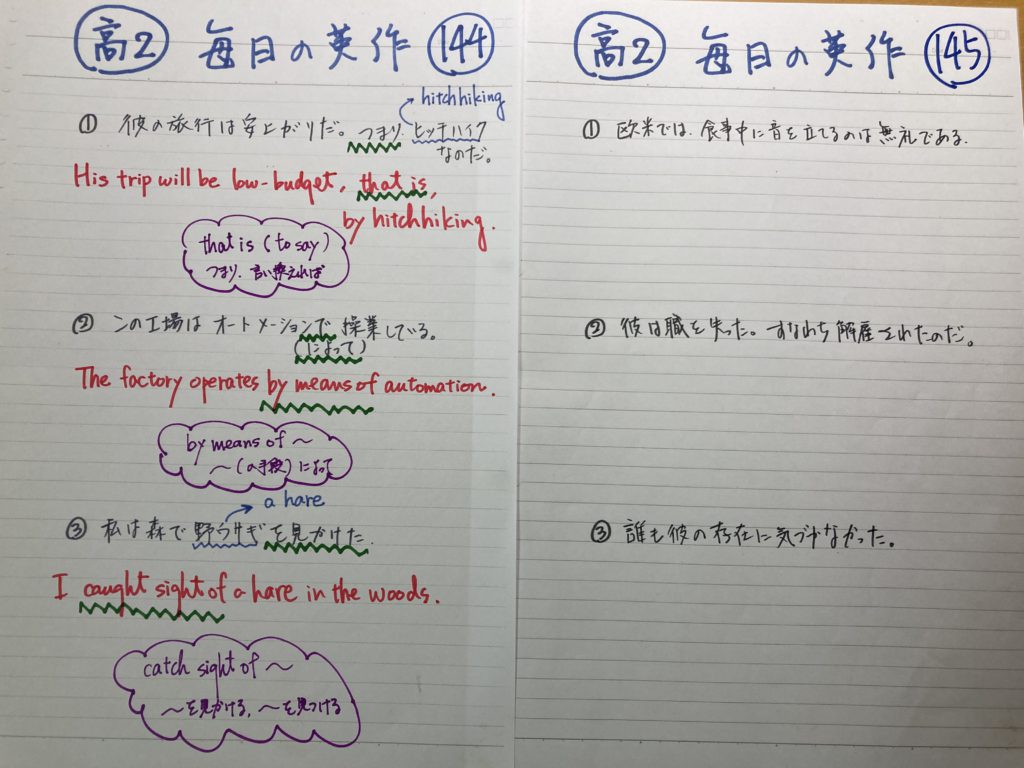 高2 毎日の英作 144
hitchhiking
① 彼の旅行は安上がりだ。つまり、ヒッチハイク
なのだ。
His trip will be low-budget, that is,
by hitchhiking.
that is (to say)
つまり、言い換えれば
② この工場は オートメーションで 操業している。
(によって)
The factory operates by means of automation.
by means of ～
～(の手段)によって
a hare
③ 私は森で野うさぎを見かけた.
I caught sight of a hare in the woods.
catch sight of ～
～を見かける, ～を見つける
高2 毎日の英作 145
① 欧米では、食事中に音を立てるのは無礼である.
② 彼は職を失った。すなわち解雇されたのだ。
③ 誰も彼の存在に気づかなかった。